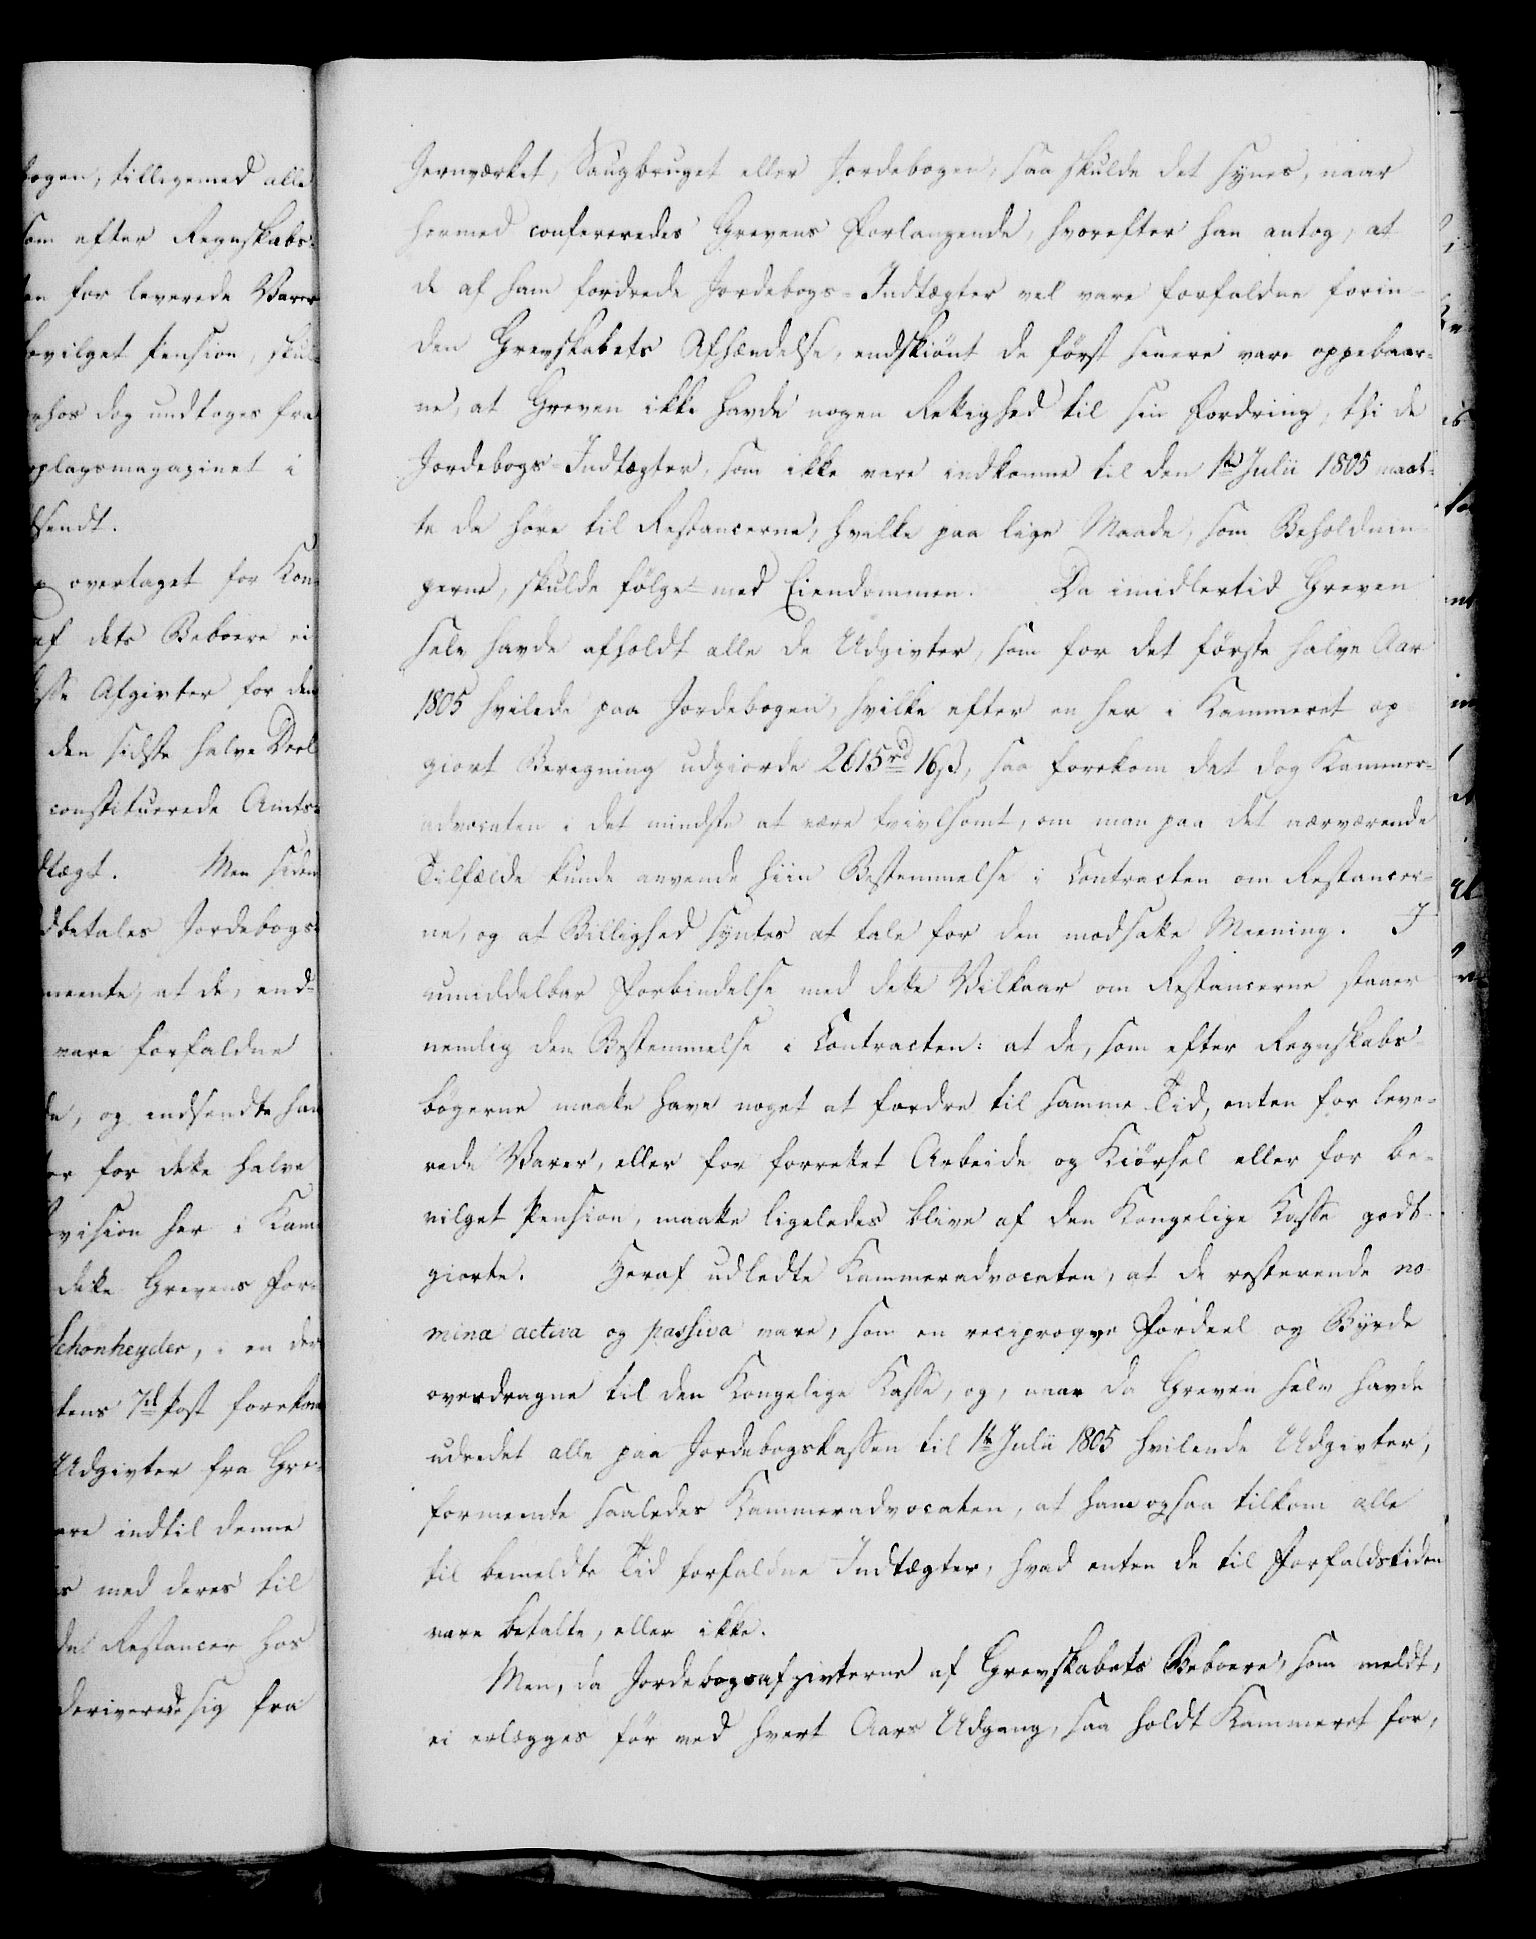 bogen, tilligemed alle
som efter Regnskabs-
en for leverede Varer
bevilget Pension, skul-
ahos dog undtoges fra
oplagsmagazinet i
sendt.
overtaget for Kon-
af dets Beboere ei
sse Afgivter for den
den sidste halve Deel
constituerede Amts-
dtægt. Men siden
dbetales Jordebogs-
meente, at de, end-
vare forfaldne
de, og indsendte han
er for dette halve
evision her i Kam-
dette Grevens For-
Schonheyder, i en der
tens 7de Post forekom
Udgivter fra Gre-
ere indtil denne
s med deres til
de Restancer hos
deriverede sig fra
Jernværket, Saugbruget eller Jordebogen, saa skulde det synes, naar
hermed confereredes Grevens Forlangende, hvorefter han antog, at
de af ham fordrede Jordebogs-Indtægter vel vare forfaldne forin-
den Grevskabets Afhændelse, endskiönt de först senere vare oppebaar-
ne, at Greven ikke havde nogen Rettighed til sin Fordring, thi de
Jordebogs-Indtægter, som ikke vare indkomne til den 1ste Julii 1805 maat-
te da höre til Restancerne, hvilke paa lige Maade, som Beholdnin-
gerne, skulde fölge med Eiendommen. Da imidlertid Greven
selv havde afholdt alle de Udgivter, som for det förste halve Aar
1805 hvilede paa Jordebogen, hvilke efter en her i Kammeret op-
giort Beregning udgiorde 2615rd 16ß, saa forekom det dog Kammer-
advocaten i det mindste at være tvivlsomt, om man paa det nærværende
Tilfælde kunde anvende hiin Bestemmelse i Contracten om Restancer-
ne, og at Billighed syntes at tale for den modsatte Meening. I
umiddelbar Forbindelse med dette Vilkaar om Restancerne staaer
nemlig den Bestemmelse i Contracten: at de, som efter Regnskabs-
bögerne maatte have noget at fordre til samme Tid, enten for leve-
rede Varer, eller for forrettet Arbeide og Kiörsel eller for be-
vilget Pension, maatte ligeledes blive af den Kongelige Kasse godt-
giorte. Heraf udledte Kammeradvocaten, at de resterende no-
mina activa og passiva vare, som en reciproqve Fordeel og Byrde
overdragne til den Kongelige Kasse, og, naar da Greven selv havde
udredet alle paa Jordebogskassen til 1ste Julii 1805 hvilende Udgivter,
formeente saaledes Kammeradvocaten, at ham ogsaa tilkom alle
til bemeldte Tid forfaldne Indtægter, hvad enten de til Forfaldstiden
vare betalte, eller ikke.
Men, da Jordebogsafgivterne af Grevskabets Beboere, som meldt,
ei erlægges för ved hvert Aars Udgang, saa holdt Kammeret for,